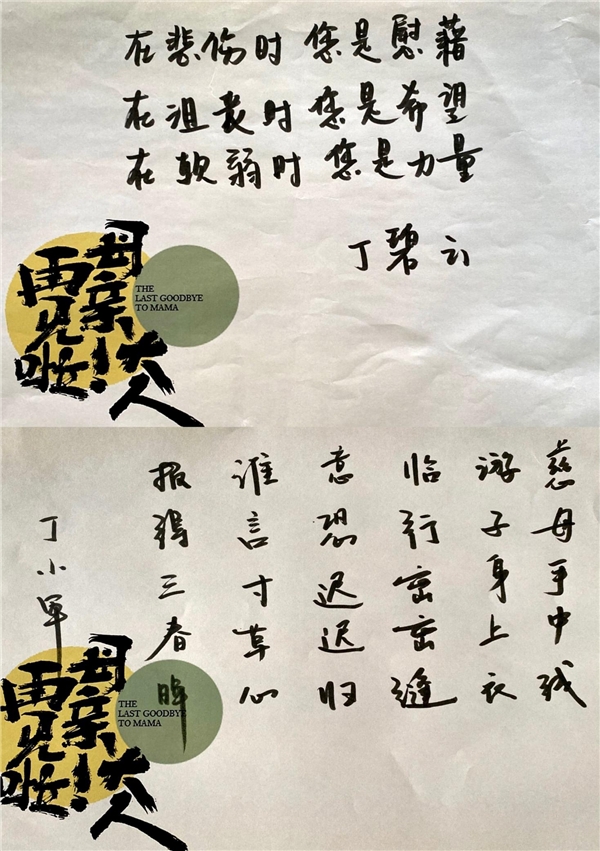 在悲伤时 您是慰藉
在沮丧时 您是希望
在软弱时 您是力量
丁碧云
再见啦!
母亲大人
THE
LAST GOODBYE
TO MAMA
慈母手中线
游子身上衣
临行密密缝
意恐迟迟归
谁言寸草心
报得三春晖
丁小军
再见啦!
母亲大人
THE
LAST GOODBYE
TO MAMA